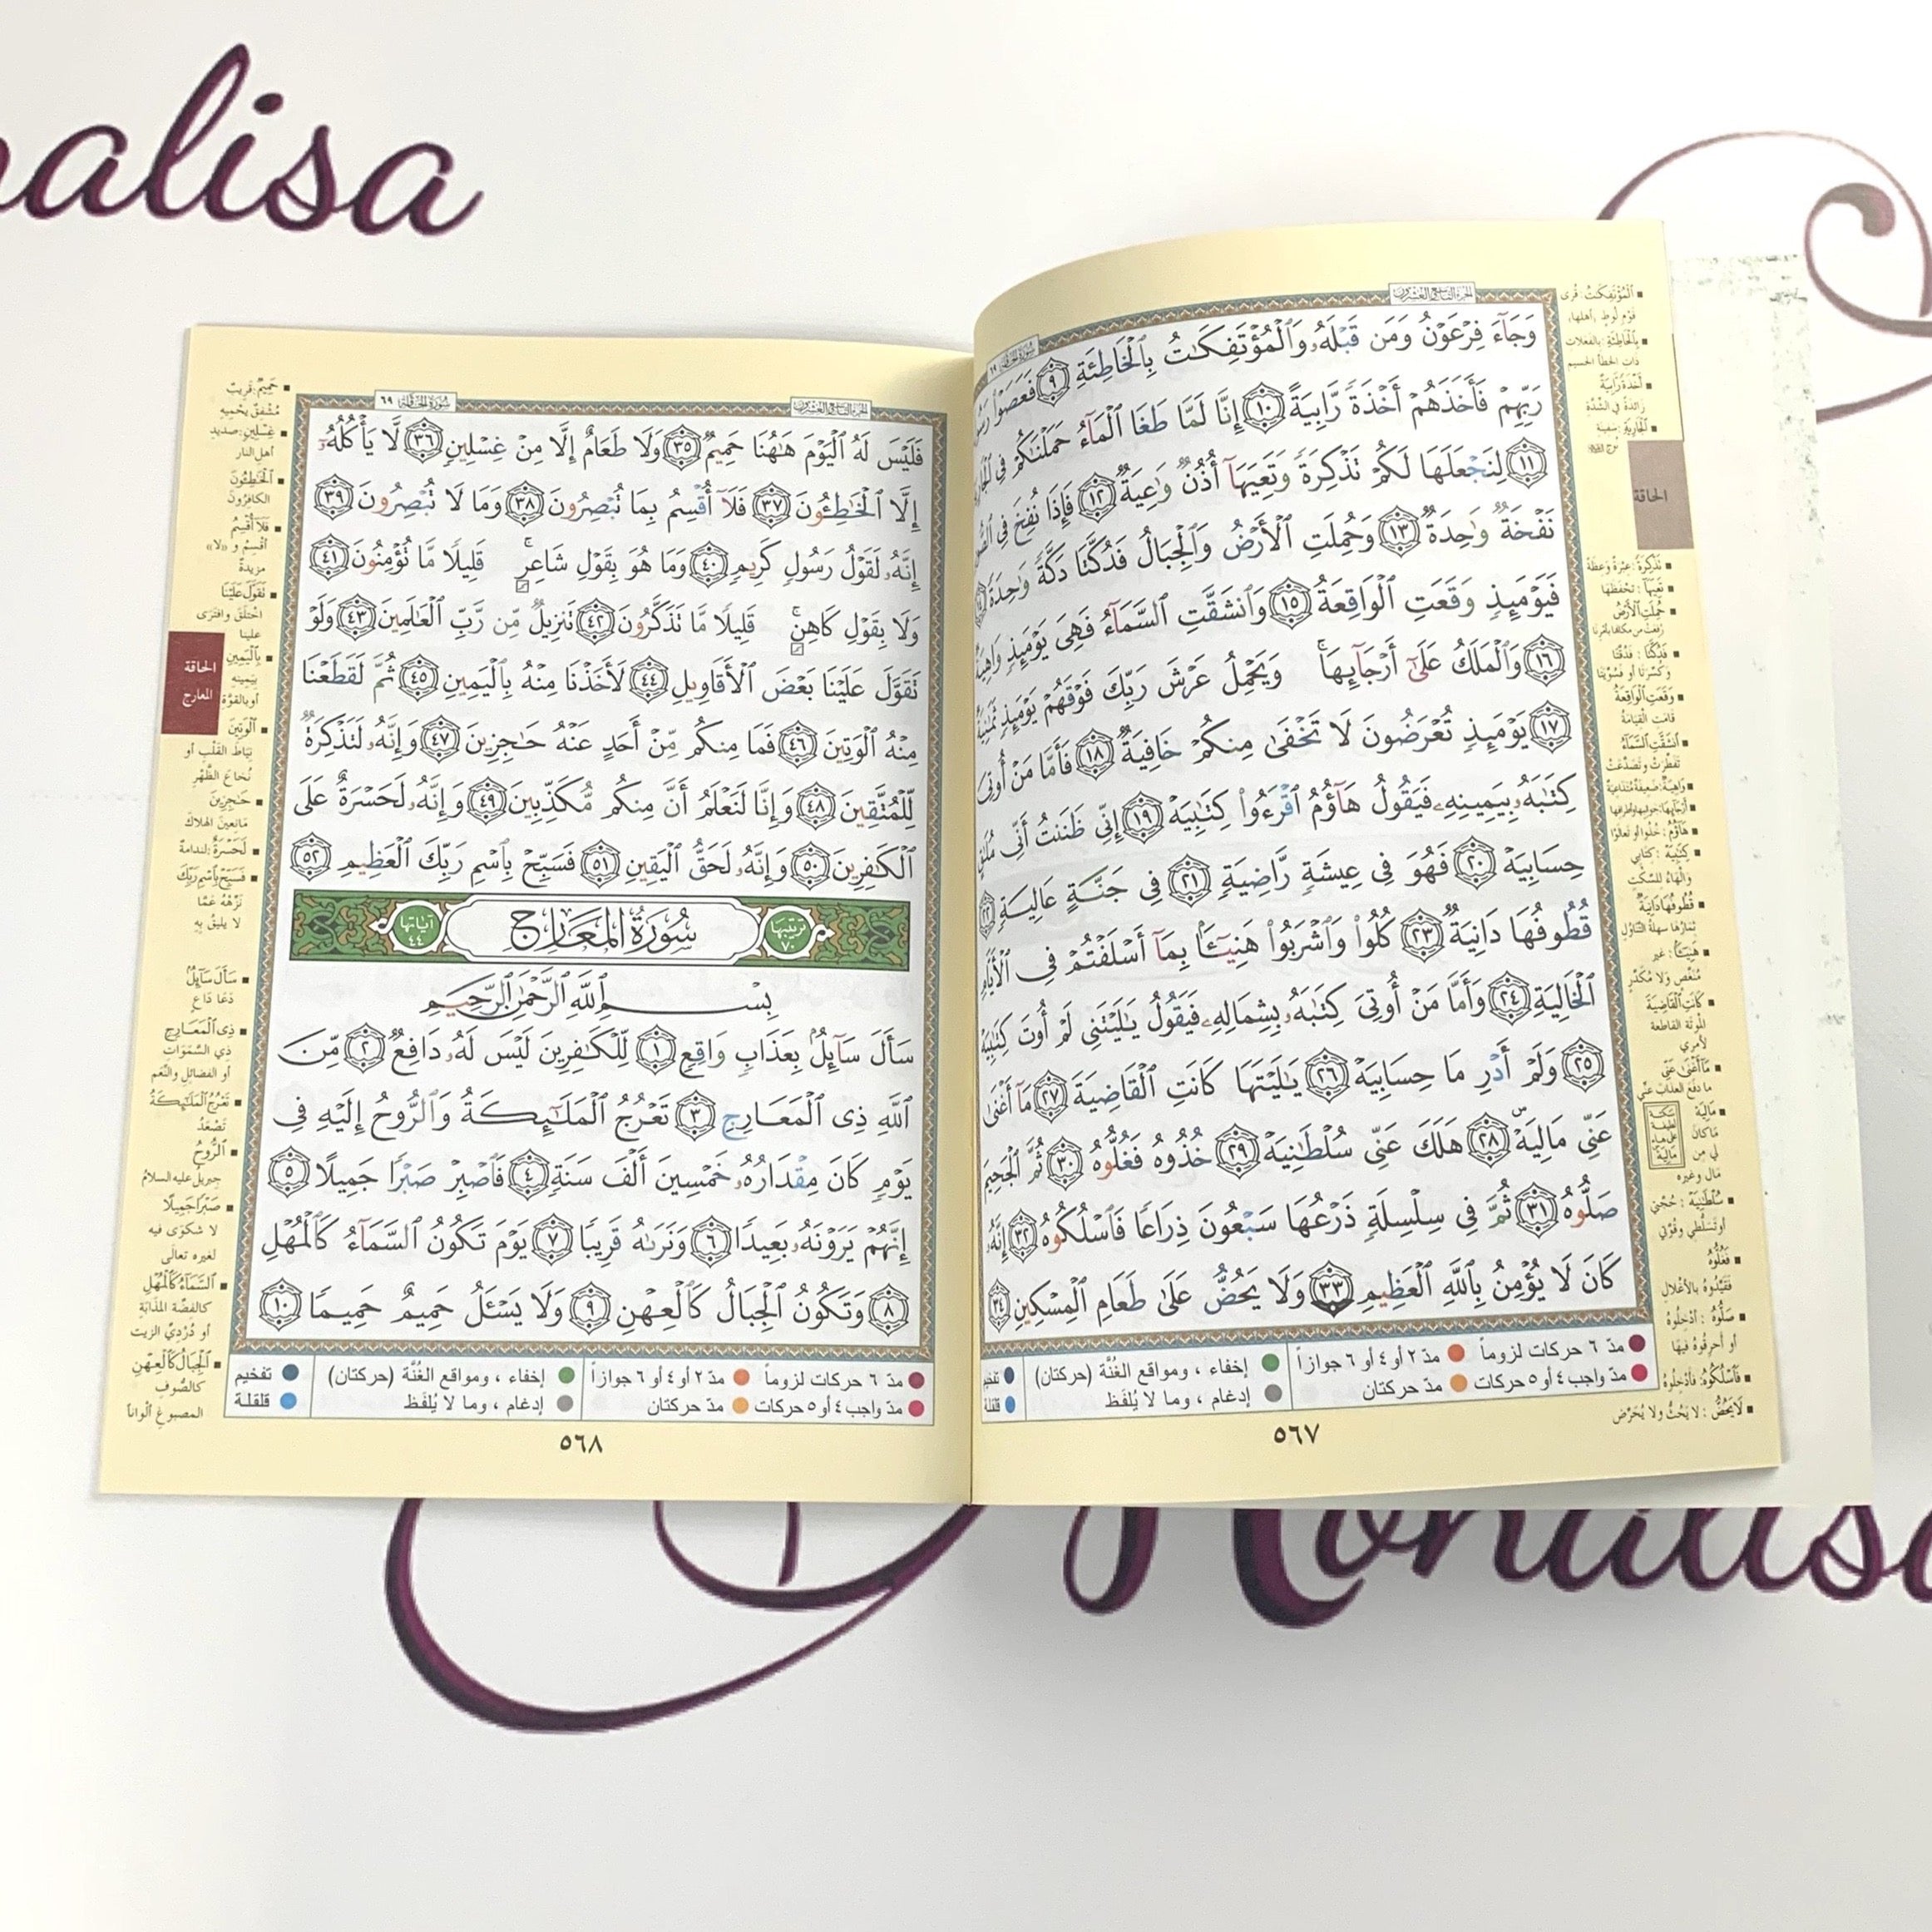 nalisa
الجزء التاسع والعشرون
وَجَآءَ فِرْعَوْنُ وَمَن قَبْلَهُۥ وَٱلْمُؤْتَفِكَٰتُ بِٱلْخَاطِئَةِ ٩ فَعَصَوْا۟
رَبِّهِمْ فَأَخَذَهُمْ أَخْذَةً رَّابِيَةً ١٠ إِنَّا لَمَّا طَغَا ٱلْمَآءُ حَمَلْنَٰكُمْ فِى
١١ لِنَجْعَلَهَا لَكُمْ تَذْكِرَةً وَتَعِيَهَآ أُذُنٌ وَٰعِيَةٌ ١٢ فَإِذَا نُفِخَ فِى
نَفْخَةٌ وَٰحِدَةٌ ١٣ وَحُمِلَتِ ٱلْأَرْضُ وَٱلْجِبَالُ فَدُكَّتَا دَكَّةً وَٰحِدَةً
فَيَوْمَئِذٍ وَقَعَتِ ٱلْوَاقِعَةُ ١٥ وَٱنشَقَّتِ ٱلسَّمَآءُ فَهِىَ يَوْمَئِذٍ وَاهِيَةٌ
١٦ وَٱلْمَلَكُ عَلَىٰٓ أَرْجَآئِهَا ۚ وَيَحْمِلُ عَرْشَ رَبِّكَ فَوْقَهُمْ يَوْمَئِذٍ ثَمَٰنِيَةٌ
١٧ يَوْمَئِذٍ تُعْرَضُونَ لَا تَخْفَىٰ مِنكُمْ خَافِيَةٌ ١٨ فَأَمَّا مَنْ أُوتِىَ
كِتَٰبَهُۥ بِيَمِينِهِۦ فَيَقُولُ هَآؤُمُ ٱقْرَءُوا۟ كِتَٰبِيَهْ ١٩ إِنِّى ظَنَنتُ أَنِّى
حِسَابِيَهْ ٢٠ فَهُوَ فِى عِيشَةٍ رَّاضِيَةٍ ٢١ فِى جَنَّةٍ عَالِيَةٍ ٢٢
قُطُوفُهَا دَانِيَةٌ ٢٣ كُلُوا۟ وَٱشْرَبُوا۟ هَنِيٓـًٔۢا بِمَآ أَسْلَفْتُمْ فِى ٱلْأَيَّامِ
ٱلْخَالِيَةِ ٢٤ وَأَمَّا مَنْ أُوتِىَ كِتَٰبَهُۥ بِشِمَالِهِۦ فَيَقُولُ يَٰلَيْتَنِى لَمْ أُوتَ كِتَٰبِيَهْ
٢٥ وَلَمْ أَدْرِ مَا حِسَابِيَهْ ٢٦ يَٰلَيْتَهَا كَانَتِ ٱلْقَاضِيَةَ ٢٧ مَآ أَغْنَىٰ
عَنِّى مَالِيَهْ ٢٨ هَلَكَ عَنِّى سُلْطَٰنِيَهْ ٢٩ خُذُوهُ فَغُلُّوهُ ٣٠ ثُمَّ ٱلْجَحِيمَ
صَلُّوهُ ٣١ ثُمَّ فِى سِلْسِلَةٍ ذَرْعُهَا سَبْعُونَ ذِرَاعًا فَٱسْلُكُوهُ ٣٢ إِنَّهُۥ
كَانَ لَا يُؤْمِنُ بِٱللَّهِ ٱلْعَظِيمِ ٣٣ وَلَا يَحُضُّ عَلَىٰ طَعَامِ ٱلْمِسْكِينِ ٣٤
مدّ ٦ حركات لزوماً مدّ ٢ أو ٤ أو ٦ جوازاً إخفاء ، ومواقع الغُنَّة (حركتان)
مدّ واجب ٤ أو ٥ حركات مدّ حركتان إدغام ، وما لا يُلفَظ
٥٦٧
ٱلْمُؤْتَفِكَٰتُ: قُرى
قوم لوط (أهلها)
بِٱلْخَاطِئَةِ: بالفعلات
ذات الخطأ الجسيم
أَخْذَةً رَّابِيَةً
زائدة في الشدّة
الحاقة
تَذْكِرَةً: عبرةً وعظةً
تَعِيَهَآ: تحفظها
حُمِلَتِ ٱلْأَرْضُ
فَدُكَّتَا: فدُقَّتا
وَقَعَتِ ٱلْوَاقِعَةُ
قامت القيامة
ٱنشَقَّتِ ٱلسَّمَآءُ
تفطّرت وتصدّعت
كِتَٰبِيَهْ: كتابي
والهاء للسّكت
قُطُوفُهَا دَانِيَةٌ
ثمارها سهلة التناول
هَنِيٓـًٔا: غير
منغّص ولا مكدّر
كَانَتِ ٱلْقَاضِيَةَ
الموتة القاطعة
لأمري
مَآ أَغْنَىٰ عَنِّى
ما دفع العذاب عنّي
مَالِيَهْ
ما كان
لي من
مال وغيره
سُلْطَٰنِيَهْ: حُجّتي
أو تسلّطي وقوّتي
فَغُلُّوهُ
فقيّدوه بالأغلال
صَلُّوهُ: أدخلوه
أو أحرقوه فيها
فَٱسْلُكُوهُ: فأدخلوه
لَا يَحُضُّ: لا يحثّ ولا يحرّض
سورة الحاقة ٦٩
الجزء التاسع والعشرون
فَلَيْسَ لَهُ ٱلْيَوْمَ هَٰهُنَا حَمِيمٌ ٣٥ وَلَا طَعَامٌ إِلَّا مِنْ غِسْلِينٍ ٣٦ لَّا يَأْكُلُهُۥٓ
إِلَّا ٱلْخَٰطِـُٔونَ ٣٧ فَلَآ أُقْسِمُ بِمَا تُبْصِرُونَ ٣٨ وَمَا لَا تُبْصِرُونَ ٣٩
إِنَّهُۥ لَقَوْلُ رَسُولٍ كَرِيمٍ ٤٠ وَمَا هُوَ بِقَوْلِ شَاعِرٍ ۚ قَلِيلًا مَّا تُؤْمِنُونَ ٤١
وَلَا بِقَوْلِ كَاهِنٍ ۚ قَلِيلًا مَّا تَذَكَّرُونَ ٤٢ تَنزِيلٌ مِّن رَّبِّ ٱلْعَٰلَمِينَ ٤٣ وَلَوْ
تَقَوَّلَ عَلَيْنَا بَعْضَ ٱلْأَقَاوِيلِ ٤٤ لَأَخَذْنَا مِنْهُ بِٱلْيَمِينِ ٤٥ ثُمَّ لَقَطَعْنَا
مِنْهُ ٱلْوَتِينَ ٤٦ فَمَا مِنكُم مِّنْ أَحَدٍ عَنْهُ حَٰجِزِينَ ٤٧ وَإِنَّهُۥ لَتَذْكِرَةٌ
لِّلْمُتَّقِينَ ٤٨ وَإِنَّا لَنَعْلَمُ أَنَّ مِنكُم مُّكَذِّبِينَ ٤٩ وَإِنَّهُۥ لَحَسْرَةٌ عَلَى
ٱلْكَٰفِرِينَ ٥٠ وَإِنَّهُۥ لَحَقُّ ٱلْيَقِينِ ٥١ فَسَبِّحْ بِٱسْمِ رَبِّكَ ٱلْعَظِيمِ ٥٢
ترتيبها ٧٠ سُورَةُ المَعَارِج آياتها ٤٤
بِسْمِ ٱللَّهِ ٱلرَّحْمَٰنِ ٱلرَّحِيمِ
سَأَلَ سَآئِلٌۢ بِعَذَابٍ وَاقِعٍ ١ لِّلْكَٰفِرِينَ لَيْسَ لَهُۥ دَافِعٌ ٢ مِّنَ
ٱللَّهِ ذِى ٱلْمَعَارِجِ ٣ تَعْرُجُ ٱلْمَلَٰٓئِكَةُ وَٱلرُّوحُ إِلَيْهِ فِى
يَوْمٍ كَانَ مِقْدَارُهُۥ خَمْسِينَ أَلْفَ سَنَةٍ ٤ فَٱصْبِرْ صَبْرًا جَمِيلًا ٥
إِنَّهُمْ يَرَوْنَهُۥ بَعِيدًا ٦ وَنَرَىٰهُ قَرِيبًا ٧ يَوْمَ تَكُونُ ٱلسَّمَآءُ كَٱلْمُهْلِ
٨ وَتَكُونُ ٱلْجِبَالُ كَٱلْعِهْنِ ٩ وَلَا يَسْـَٔلُ حَمِيمٌ حَمِيمًا ١٠
مدّ ٦ حركات لزوماً مدّ ٢ أو ٤ أو ٦ جوازاً إخفاء ، ومواقع الغُنَّة (حركتان) تفخيم
مدّ واجب ٤ أو ٥ حركات مدّ حركتان إدغام ، وما لا يُلفَظ قلقلة
٥٦٨
حَمِيمٌ: قريبٌ
مُشفقٌ يحميه
غِسْلِينٍ: صديد
أهل النار
ٱلْخَٰطِـُٔونَ
الكافرون
فَلَآ أُقْسِمُ
أقسم و «لا»
مزيدة
تَقَوَّلَ عَلَيْنَا
اختلق وافترى
علينا
بِٱلْيَمِينِ
بيمينه
أو بالقوة
الحاقة
المعارج
ٱلْوَتِينَ
نياط القلب أو
نخاع الظّهر
حَٰجِزِينَ
مانعين الهلاك
لَحَسْرَةٌ: لندامة
فَسَبِّحْ بِٱسْمِ رَبِّكَ
نزّهه عمّا
لا يليق به
سَأَلَ سَآئِلٌ
دعا داعٍ
ذِى ٱلْمَعَارِجِ
ذي السّموات
أو الفضائل والنّعم
تَعْرُجُ ٱلْمَلَٰٓئِكَةُ
تصعد
ٱلرُّوحُ
جبريل عليه السلام
صَبْرًا جَمِيلًا
لا شكوى فيه
لغيره تعالى
ٱلسَّمَآءُ كَٱلْمُهْلِ
كالفضّة المذابة
أو دُرديّ الزيت
ٱلْجِبَالُ كَٱلْعِهْنِ
كالصّوف
المصبوغ ألواناً
Monalisa